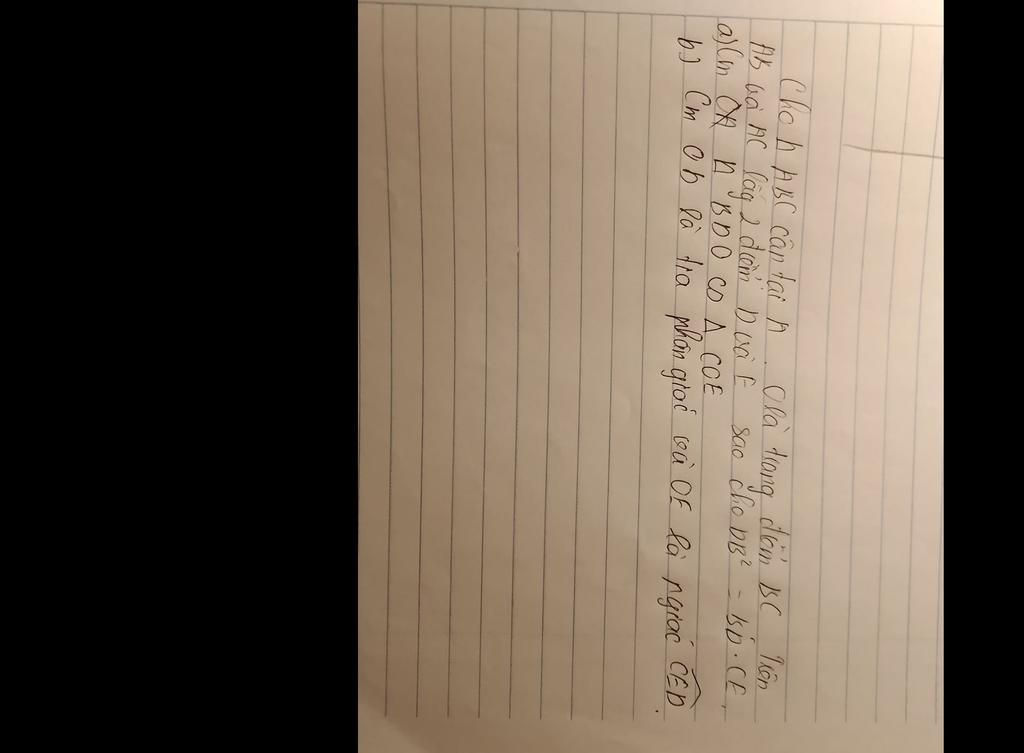 Cho Δ ABC cân tại A. O là trung điểm BC Trên
AB và AC lấy 2 điểm D và E sao cho OB² = BD.CE.
a) Cm Δ BDO ∽ Δ COE
b) Cm OD là tia phân giác và OE là pgiác CED.